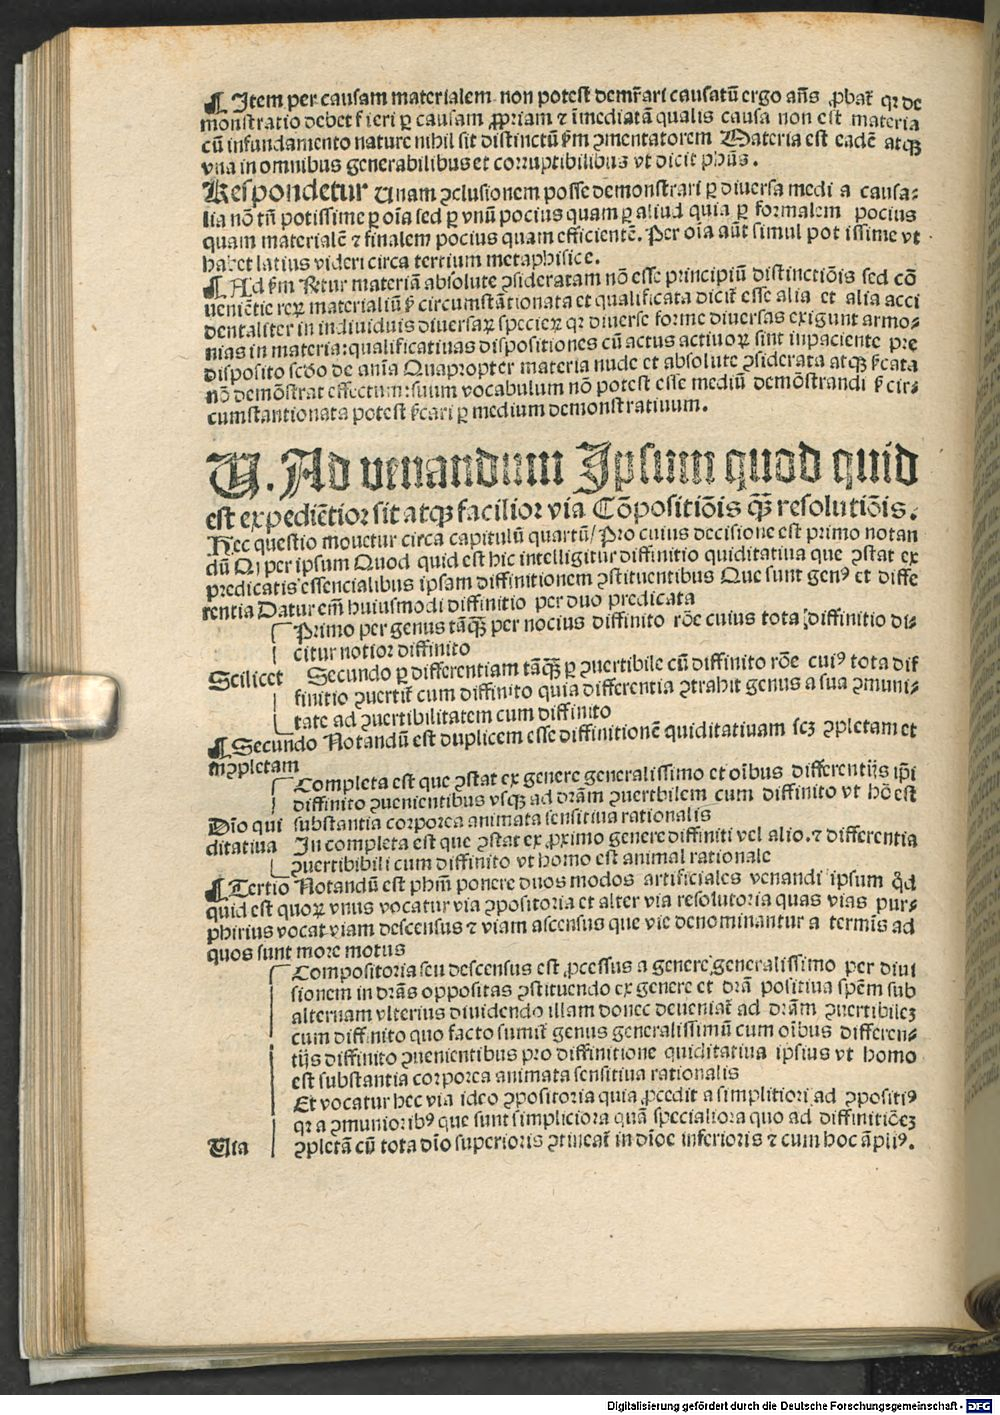 ¶ Item per causam materialem non potest demr̃ari causatũ ergo añs ꝓbat᷑ qꝛ de
monstratio debet fieri ꝑ causam ꝓpriam ⁊ ĩmediatã qualis causa non est materia
cũ infundamento nature nihil sit distinctũ ẜm ꝯmentatorem Materia est eadẽ atqꝫ
vna in omnibus generabilibus et corruptibilibus vt dicit phũs.
Respondetur Unam ꝯclusionem posse demonstrari ꝑ diuersa medi a causa⸗
lia nõ tñ potissime ꝑ oĩa sed ꝑ vnũ pocius quam ꝑ aliud quia ꝑ formalem pocius
quam materialẽ ⁊ finalem pocius quam efficientẽ. Per oĩa aũt simul pot issime vt
habet latius videri circa tertium metaphisice.
¶ Ad ẜm Fertur materiã absolute ꝯsideratam nõ esse principiũ distinctiõis sed cõ
ueniẽtie reꝝ materialiũ ẜ circumstãtionata et qualificata dicit᷑ esse alia et alia acci
dentaliter in indiuiduis diuersaꝝ specieꝝ qꝛ diuerse forme diuersas exigunt armo⸗
nias in materia: qualificatiuas dispositiones cũ actus actiuoꝝ sint inpaciente pre
disposito scďo de anĩa Quapropter materia nude et absolute ꝯsiderata atqꝫ ẜcata
nõ demõstrat effectum: suum vocabulum nõ potest esse mediũ demõstrandi ẜ cir⸗
cumstantionata potest ẜcari ꝑ medium demonstratiuum.
U. Ad venandum Ipsum quod quid
est expediẽtior sit atqꝫ facilior via Cõpositiõis qꝫ̃ resolutiõis.
Hec questio mouetur circa capitulũ quartũ/ Pro cuius decisione est primo notan
dũ Qꝫ per ipsum Quod quid est hic intelligitur diffinitio quiditatiua que ꝯstat ex
predicatis essencialibus ipsam diffinitionem ꝯstituentibus Que sunt genꝰ et diffe
rentia Datur em̃ huiusmodi diffinitio per duo predicata
Primo per genus tãqꝫ̃ per nocius diffinito rõe cuius tota diffinitio di⸗
citur notior diffinito
Scilicet Secundo ꝑ differentiam tãqꝫ̃ ꝑ ꝯuertibile cũ diffinito rõe cuiꝰ tota dif
finitio ꝯuertit᷑ cum diffinito quia differentia ꝯtrahit genus a sua ꝯmuni⸗
tate ad ꝯuertibilitatem cum diffinito
¶ Secundo Notandũ est duplicem esse diffinitionẽ quiditatiuam scꝫ ꝯpletam et
inꝯpletam
Completa est que ꝯstat ex genere generalissimo et oĩbus differentijs ip̃i
diffinito ꝯuenientibus vsqꝫ ad drãm ꝯuertbilem cum diffinito vt hõ est
Dĩo qui substantia corporea animata sensitiua rationalis
ditatiua In completa est que ꝯstat ex ꝓximo genere diffiniti vel alio. ⁊ differentia
ꝯuertibibili cum diffinito vt homo est animal rationale
¶ Tertio Notandũ est phm̃ ponere duos modos artificiales venandi ipsum qď
quid est quoꝝ vnus vocatur via ꝯpositoria et alter via resolutoria quas vias pur⸗
phirius vocat viam descensus ⁊ viam ascensus que vie denominantur a termĩs ad
quos sunt more motus
Compositoria seu descensus est ꝓcessus a genere generalissimo per diui
sionem in drãs oppositas ꝯstituendo ex genere et drã positiua spẽm sub
alternam vlterius diuidendo illam donec deueniat᷑ ad drãm ꝯuertibileꝫ
cum diffinito quo facto sumit᷑ genus generalissimũ cum oĩbus differen⸗
tijs diffinito ꝯuenientibus pro diffinitione quiditatiua ipsius vt homo
est substantia corporea animata sensitiua rationalis
Et vocatur hec via ideo ꝯpositoria quia ꝓcedit a simplitiori ad ꝯpositiꝰ
qꝛ a ꝯmunioribꝰ que sunt simpliciora quã specialiora quo ad diffinitiõeꝫ
Uia ꝯpletã cũ tota dĩo superioris ꝯtineat᷑ in dĩoe inferioris ⁊ cum hoc ãpliꝰ.
Digitalisierung gefördert durch die Deutsche Forschungsgemeinschaft - DFG